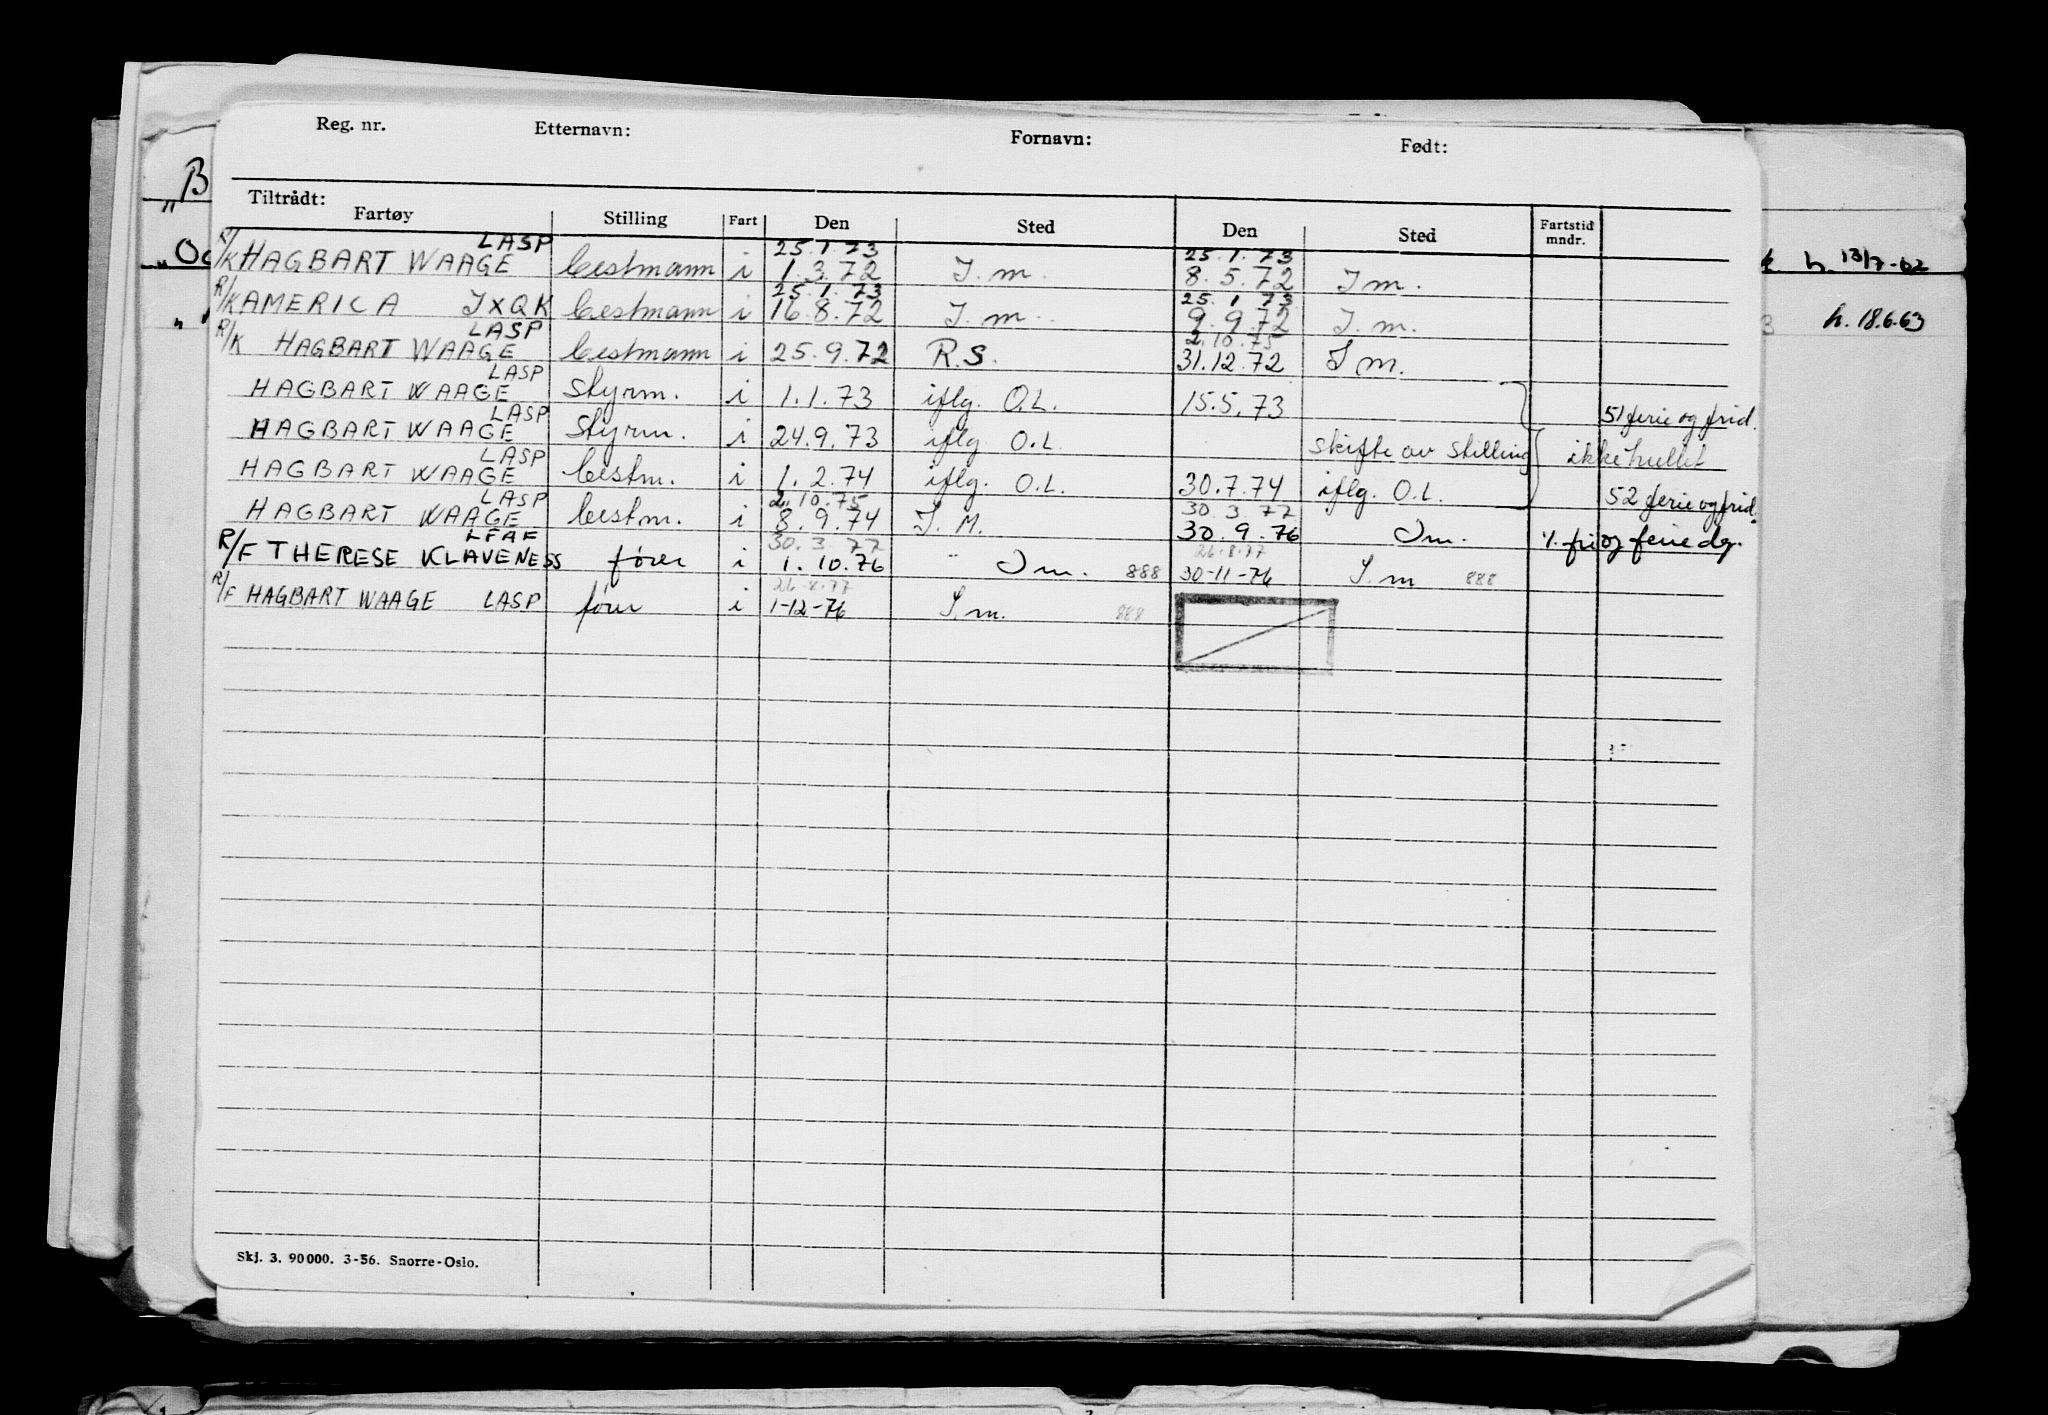 Reg. nr. Etternavn: Fornavn: Født:
Tiltrådt:
Fartøy Stilling Fart Den Sted Den Sted Fartstid mndr.
LASP 25.1.73 25.1.73
R/K HAGBART WAAGE Bestmann i 1.3.72 I.m. 8.5.72 I m.
25.1.73 25.1.73
R/K AMERICA JXQK Bestmann i 16.8.72 I.m. 9.9.72 I.m.
LASP 2.10.75
R/K HAGBART WAAGE Bestmann i 25.9.72 R.S. 31.12.72 I m.
LASP
HAGBART WAAGE Styrm. i 1.1.73 iflg. O.L. 15.5.73 51 ferie og frid.
LASP
HAGBART WAAGE Styrm. i 24.9.73 iflg O.L. skifte av stilling ikke hullet
LASP
HAGBART WAAGE Bestm. i 1.2.74 iflg. O.L. 30.7.74 iflg. O.L. 52 ferie og frid.
LASP 2.10.75 30.3.77
HAGBART WAAGE Bestm. i 8.9.74 I.M. 30.9.76 I m. %. fri og ferie dg.
LFAF 30.3.77 26.8.77
R/F THERESE KLAVENESS fører i 1.10.76 I m. 888 30-11-76 I.m 888
26.8.77
R/F HAGBART WAAGE LASP fører i 1-12-76 I.m. 888
Skj. 3. 90000. 3-56. Snorre-Oslo.
B
h. 13/7-62
h. 18.6.63